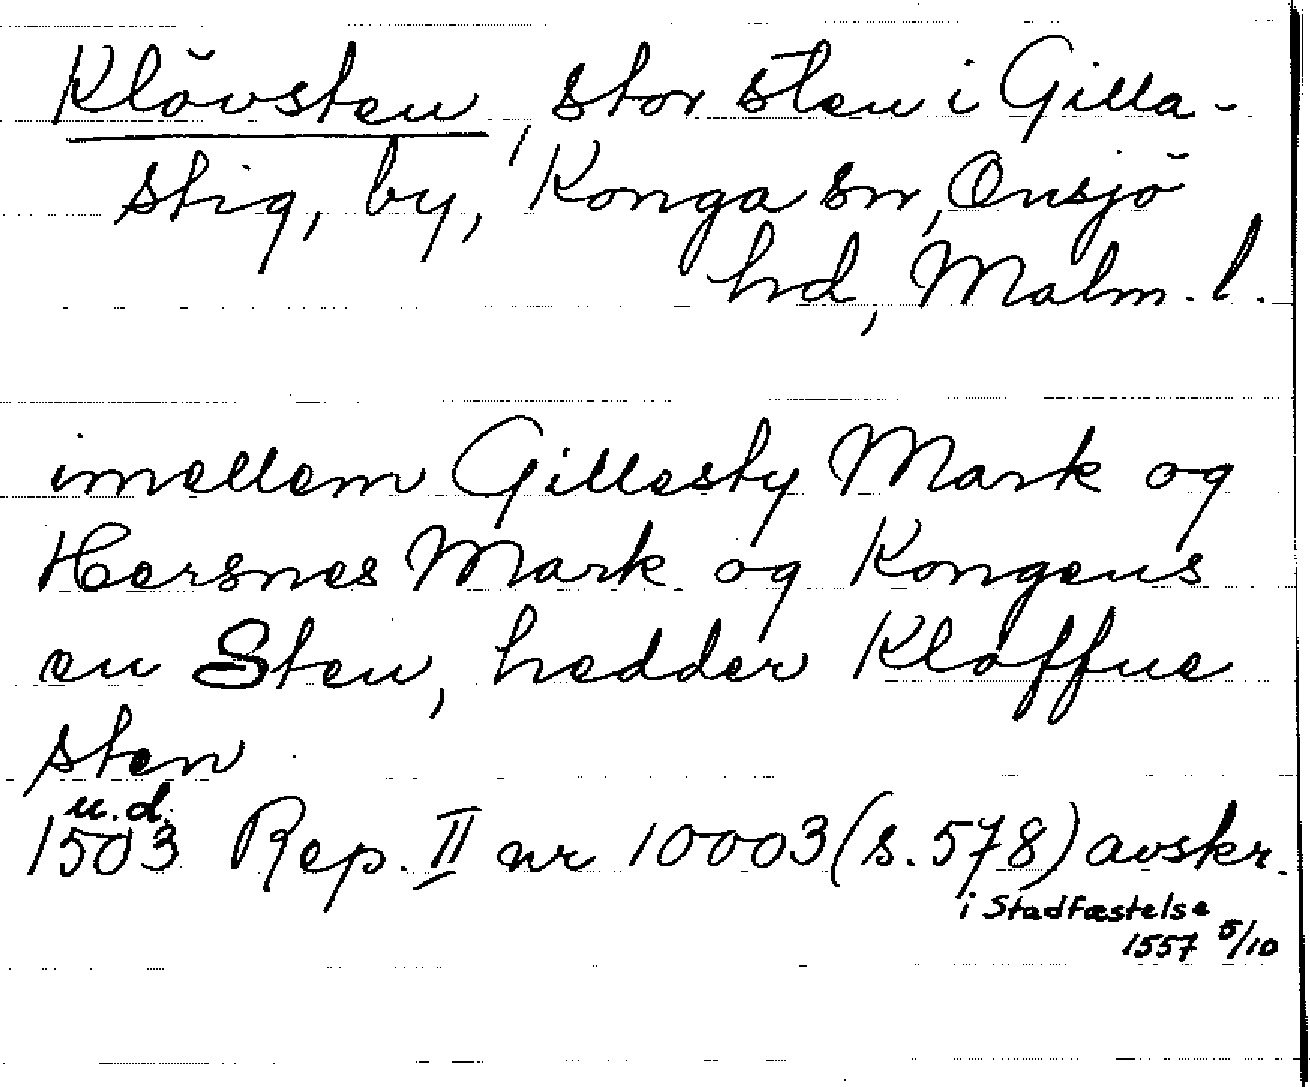 Klövsten, stor sten i Gilla-
stig, by, Konga sn, Onsjö
hd, Malm. l.
imellem Gillesty Mark og
Hersnes Mark og Kongens
en Sten, hedder Kloffue
sten
u.d.
1503 Rep. II nr 10003 (s. 578) avskr.
i Stadfæstelse
1557 5/10